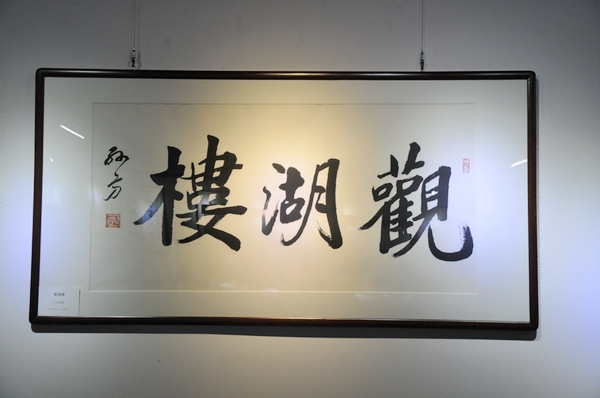 觀湖樓
孫方